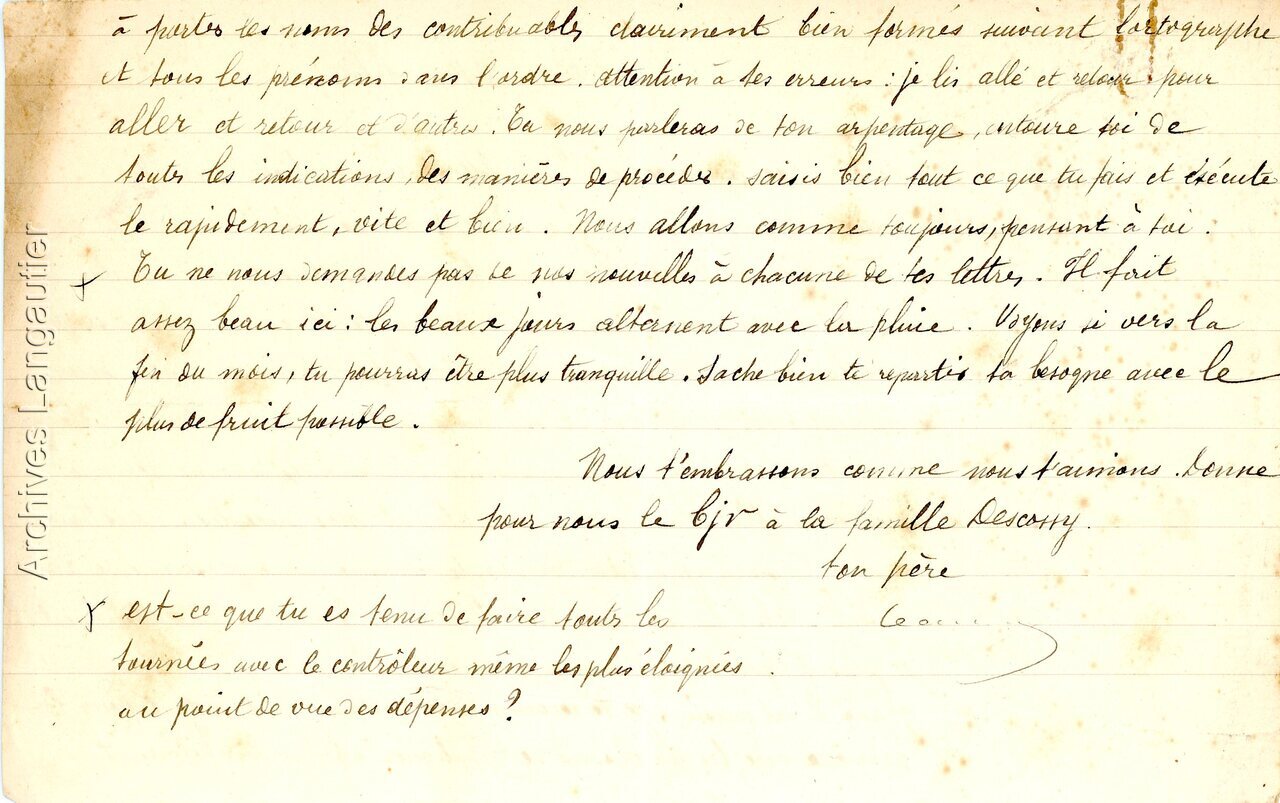 à porter les noms des contribuables clairiment bien formés suivant l'ortographe
et tous les prénoms dans l'ordre. attention à tes erreurs : je lis allé et retour pour
aller et retour et d'autres. Tu nous parleras de ton arpentage, entoure toi de
toutes les indications, des manières de procéder. saisis bien tout ce que tu fais et exécute
le rapidement, vite et bien. Nous allons comme toujours, pensant à toi.
+ Tu ne nous demandes pas de nos nouvelles à chacune de tes lettres. Il fait
assez beau ici : les beaux jours alternent avec la pluie. Voyons si vers la
fin du mois, tu pourras être plus tranquille. Sache bien te repartir ta besogne avec le
plus de fruit possible.
Nous t'embrassons comme nous t'aimons. Donne
pour nous le bjr à la famille Descossy.
ton père
x est-ce que tu es tenu de faire toutes les
tournées avec le contrôleur même les plus éloignées
au point de vue des dépenses ?
Archives Langautier